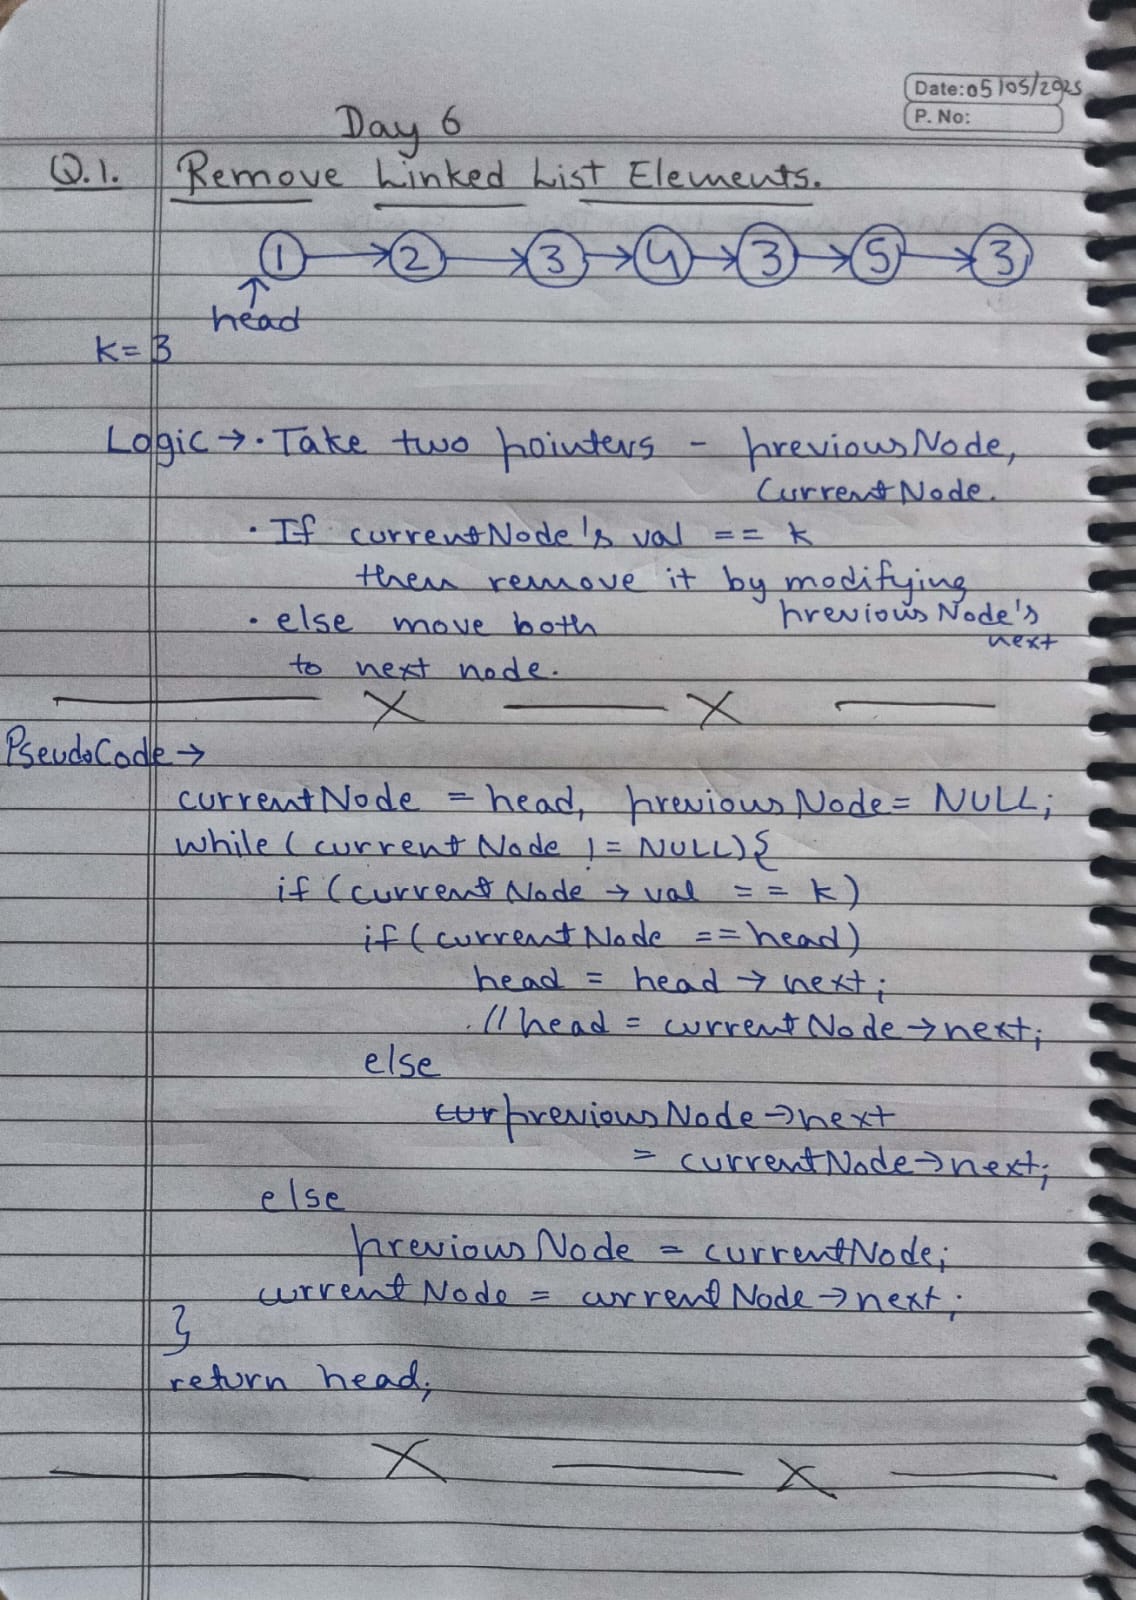 Date: 05/05/2025
P. No:
Day 6
Q.1. Remove Linked List Elements.
1 → 2 → 3 → 4 → 3 → 5 → 3
↑
head
k = 3
Logic → · Take two pointers - previousNode,
currentNode.
· If currentNode's val == k
then remove it by modifying
previousNode's
next
· else move both
to next node.
PseudoCode →
currentNode = head, previousNode = NULL;
while (currentNode != NULL){
if (currentNode → val == k)
if (currentNode == head)
head = head → next;
// head = currentNode → next;
else
cur previousNode → next
= currentNode → next;
else
previousNode = currentNode;
currentNode = currentNode → next;
}
return head;